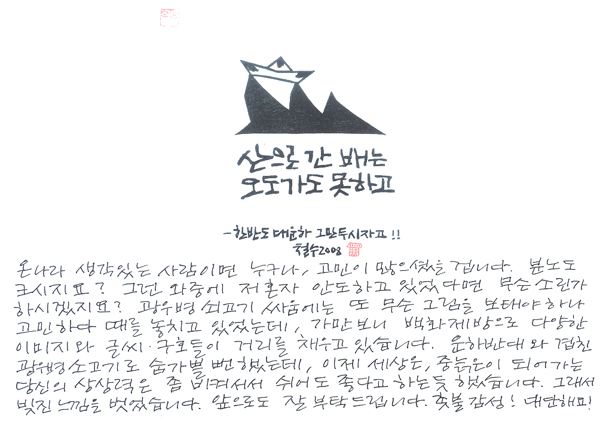 산으로 간 배는
오도가도 못하고
- 한반도 대운하 그만두시자고!!
철수2008
온나라 생각있는 사람이면 누구나, 고민이 많으셨을 겁니다. 분노도
크시지요? 그런 와중에 저혼자 안도하고 있었다면 무슨 소린가
하시겠지요? 광우병 쇠고기 싸움에는 또 무슨 그림을 보태야 하나
고민하다 때를 놓치고 있었는데, 가만보니 백화제방으로 다양한
이미지와 글씨·구호들이 거리를 채우고 있습니다. 운하반대와 겹친
광우병소고기로 숨가쁠 뻔 했는데, 이제 세상은, 중늙은이 되어가는
당신의 상상력은 좀 비켜서서 쉬어도 좋다고 하는듯 했습니다. 그래서
빚진 느낌을 벗었습니다. 앞으로도 잘 부탁드립니다. 촛불감성! 대단해요!